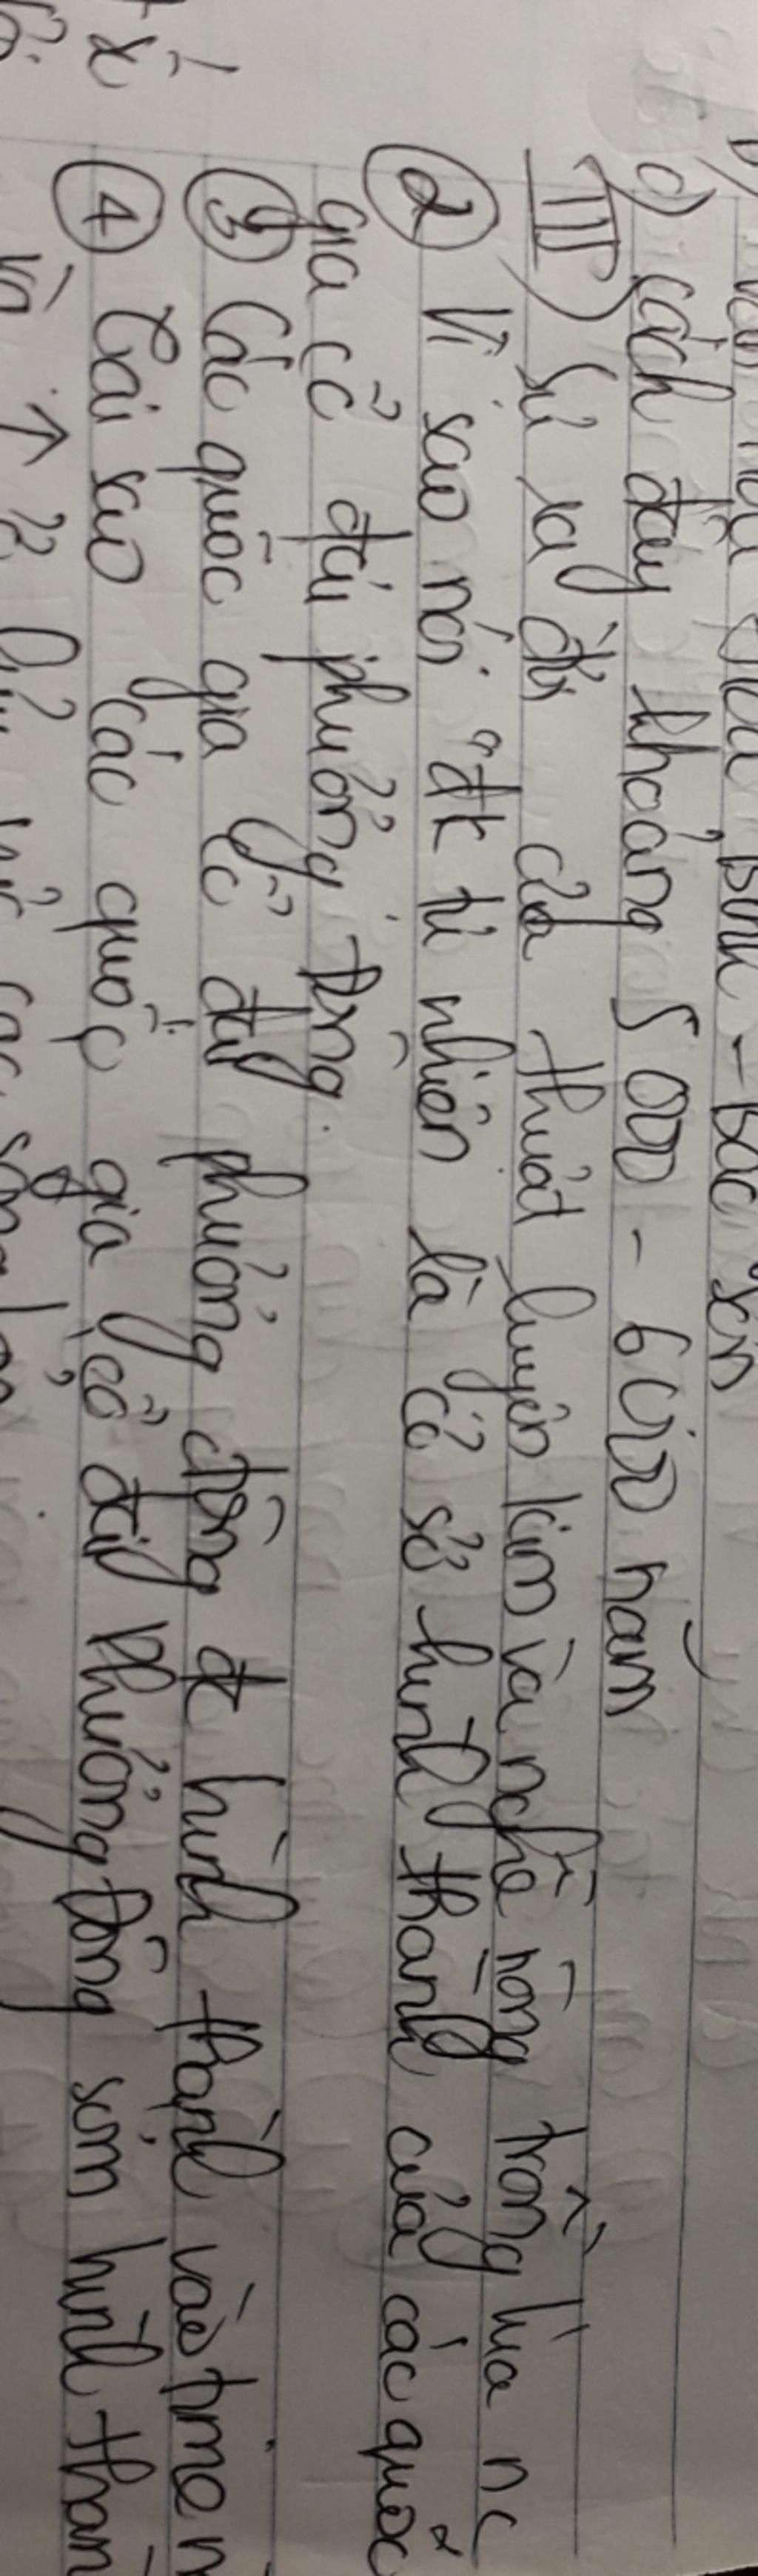 văn hoá Hoà Bình - Bắc Sơn
c) cách đây khoảng 5000 - 6000 năm
III) Sự ra đời của thuật luyện kim và nghề nông trồng lúa nc
② Vì sao nói "đk tự nhiên là cơ sở hình thành của các quốc
gia cổ đại phương Đông.
③ Các quốc gia cổ đại phương đông đc hình thành vào time n
④ Tại sao các quốc gia cổ đại Phương Đông sớm hình thàn
và ↑ ở lưu vực các sông lớn